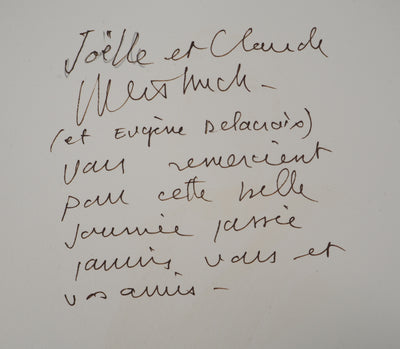 Joëlle et Claude
(et Eugène Delacroix)
vous remercient
pour cette belle
journée passée
parmis vous et
vos amis –